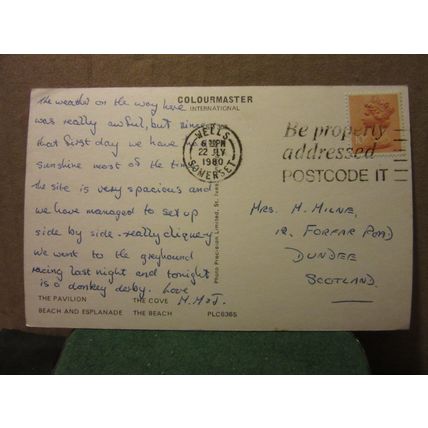 The weather on the way here
was really awful, but since
that first day we have
sunshine most of the
the site is very spacious and
we have managed to set up
side by side - really cliquey.
we went to the greyhound
racing last night and tonight
is a donkey derby. Love
COLOURMASTER
INTERNATIONAL
Photo Precision Limited, St. Ives
THE PAVILION THE COVE
BEACH AND ESPLANADE THE BEACH PLC6365
WELLS
PM
22 JLY
1980
SOMERSET
Be properly
addressed
POSTCODE IT
MRS. M. MILNE,
12, FORFAR ROAD
DUNDEE
SCOTLAND